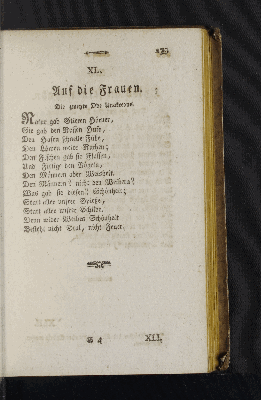 XL.
Auf die Frauen.
Die zweyte Ode Anakreons.
Natur gab Stieren Hörner,
Sie gab den Rossen Hufe,
Den Hasen schnelle Füße,
Den Löwen weite Rachen;
Den Fischen gab sie Flossen,
Und Flügel den Vögeln,
Den Männern aber Weisheit.
Den Männern! nicht den Weibern?
Was gab sie diesen? Schönheit;
Statt aller unsrer Spieße,
Statt aller unsrer Schilde.
Denn wider Weiber Schönheit
Besteht nicht Stal, nicht Feuer.
XLI.